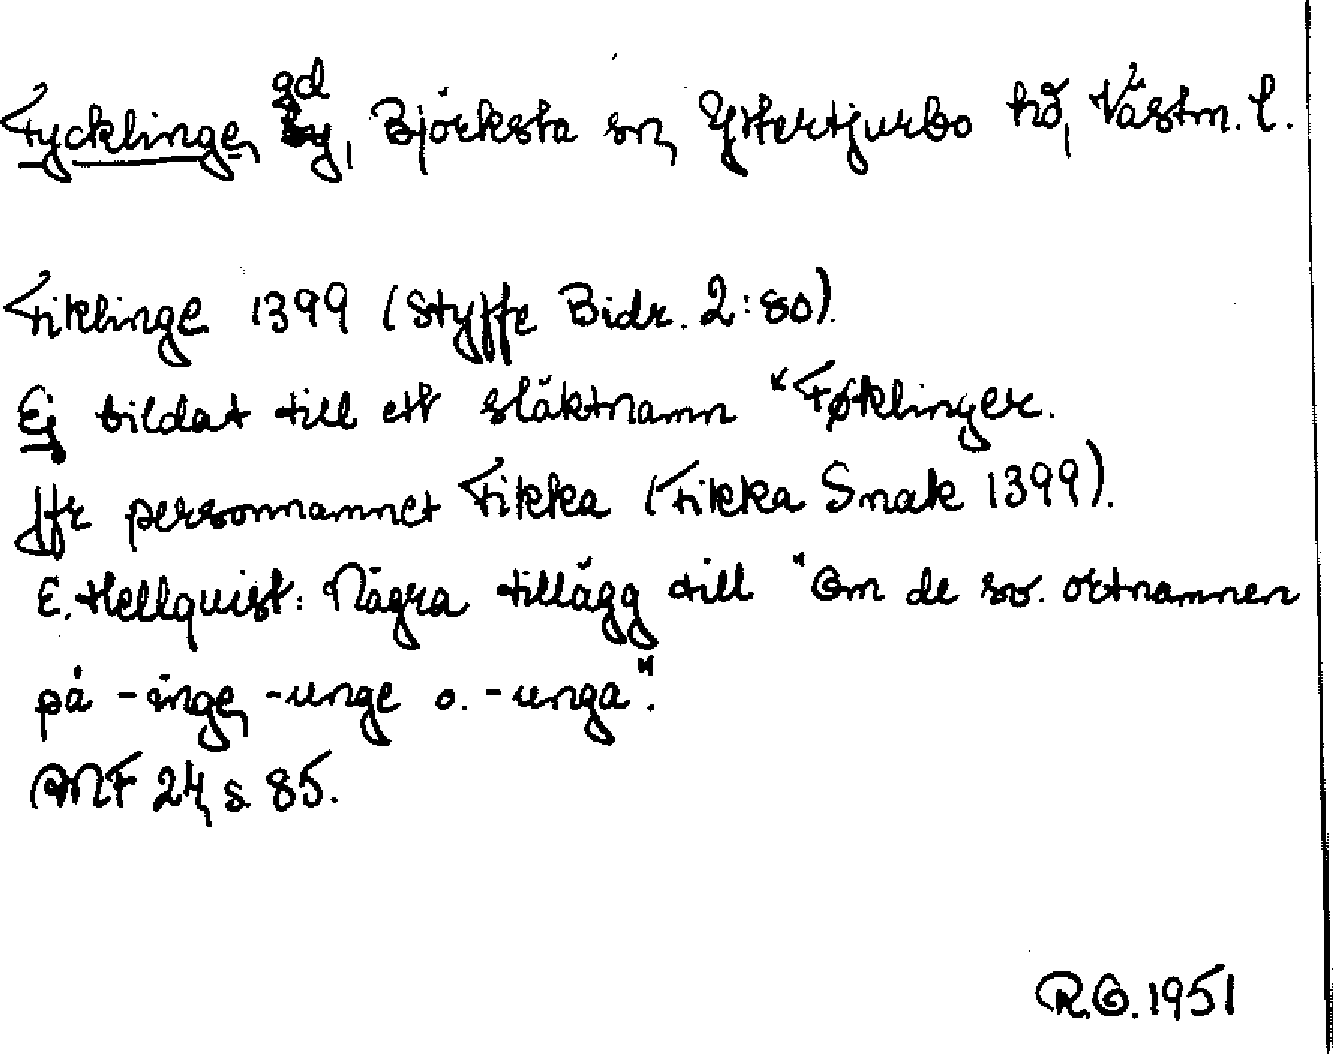 Fycklinge, gd, Björksta sn, Yttertjurbo hd, Västm. l.
Fiklinge 1399 (Styffe Bidr. 2:80).
Ej bildat till ett släktnamn *Føklinger.
Jfr personnamnet Fikka (Fikka Snak 1399).
E. Hellquist: Några tillägg till "Om de sv. ortnamnen
på -inge, -unge o. -unga".
ANF 24, s. 85.
R.O. 1951